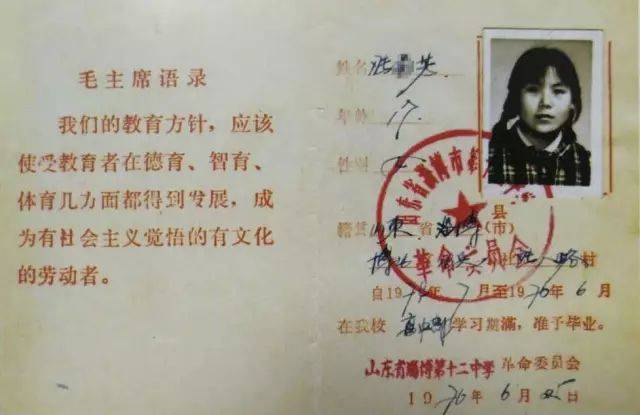 毛主席语录
我们的教育方针，应该
使受教育者在德育、智育、
体育几方面都得到发展，成
为有社会主义觉悟的有文化
的劳动者。
姓名
年龄
性别 女
籍贯 山東 省 淄博 县(市)
村
自19 年 7 月至1976年 6 月
在我校 高中部 学习期满，准予毕业。
山东省淄博第十二中学 革命委员会
1976 年 6 月 25 日
山东省淄博市
革命委员会